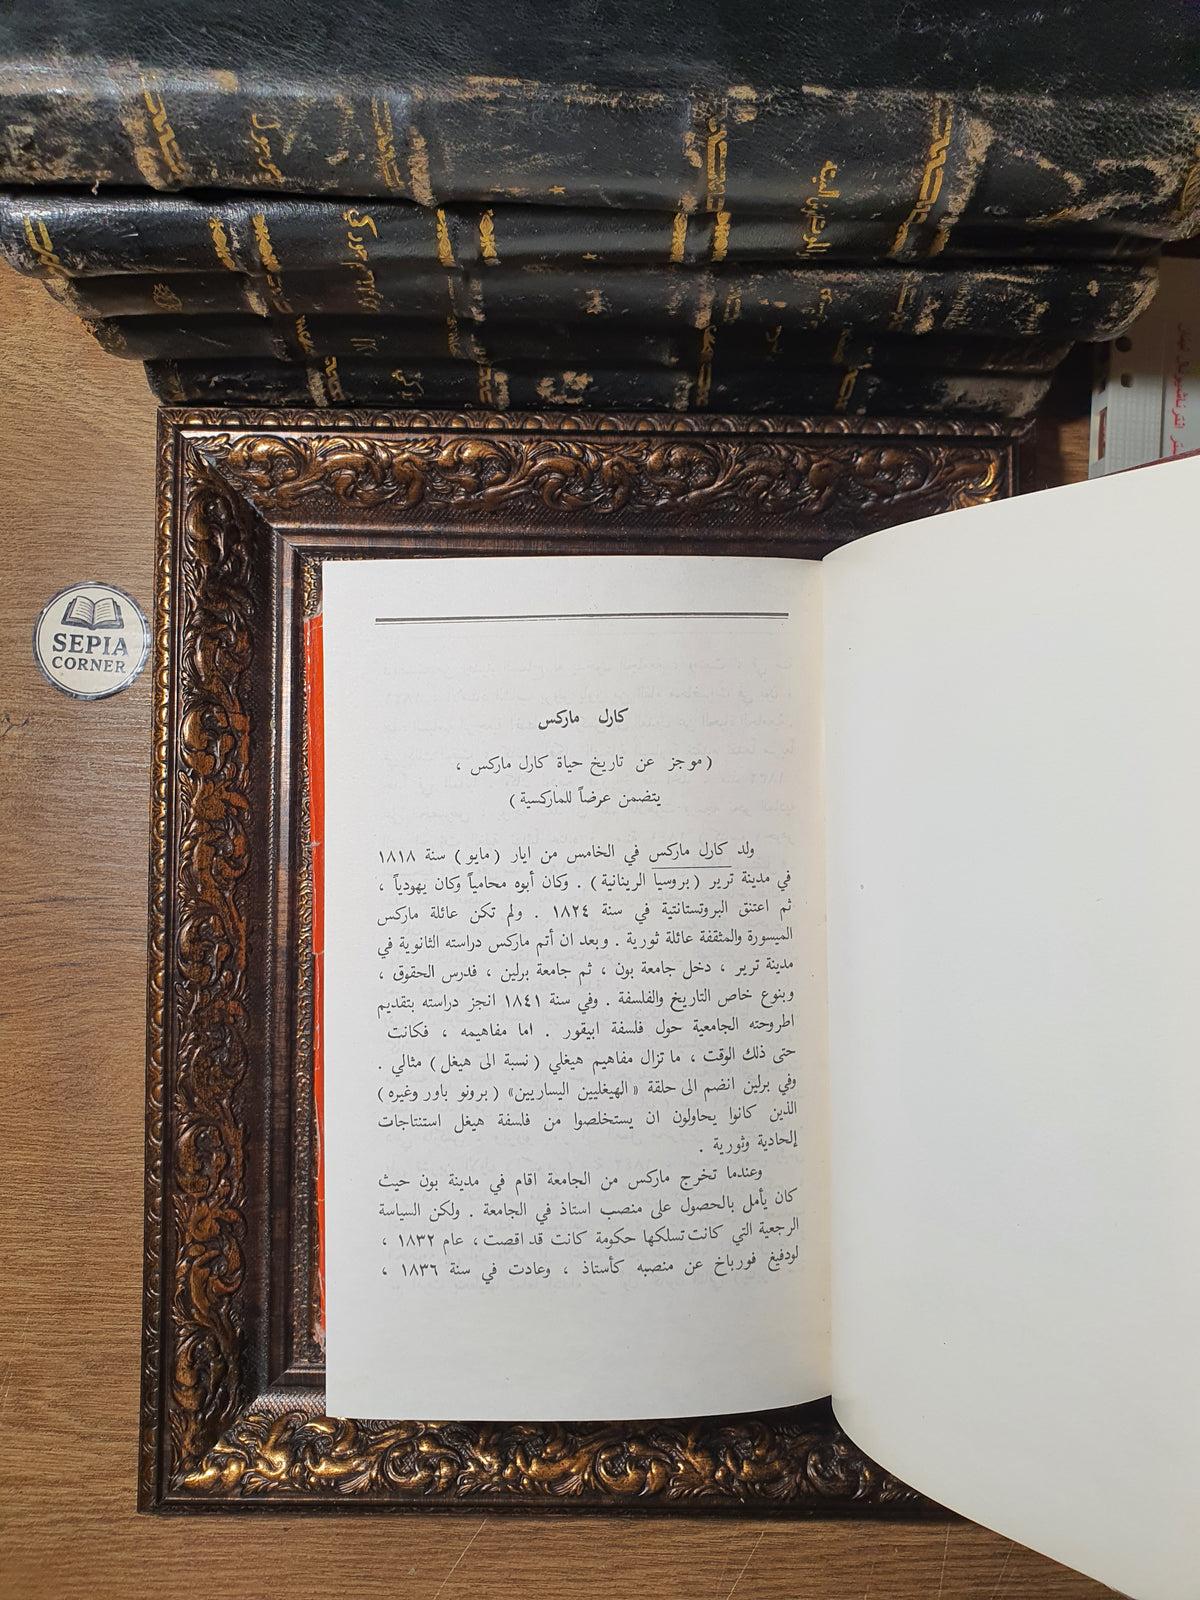 SEPIA
CORNER
كارل ماركس
( موجز عن تاريخ حياة كارل ماركس ،
يتضمن عرضاً للماركسية )
ولد كارل ماركس في الخامس من ايار ( مايو ) سنة ١٨١٨
في مدينة ترير ( بروسيا الرينانية ) . وكان أبوه محامياً وكان يهودياً ،
ثم اعتنق البروتستانتية في سنة ١٨٢٤ . ولم تكن عائلة ماركس
الميسورة والمثقفة عائلة ثورية . وبعد ان أتم ماركس دراسته الثانوية في
مدينة ترير ، دخل جامعة بون ، ثم جامعة برلين ، فدرس الحقوق ،
وبنوع خاص التاريخ والفلسفة . وفي سنة ١٨٤١ انجز دراسته بتقديم
اطروحته الجامعية حول فلسفة ابيقور . اما مفاهيمه ، فكانت
حتى ذلك الوقت ، ما تزال مفاهيم هيغلي ( نسبة الى هيغل ) مثالي .
وفي برلين انضم الى حلقة « الهيغليين اليساريين» ( برونو باور وغيره )
الذين كانوا يحاولون ان يستخلصوا من فلسفة هيغل استنتاجات
إلحادية وثورية .
وعندما تخرج ماركس من الجامعة اقام في مدينة بون حيث
كان يأمل بالحصول على منصب استاذ في الجامعة . ولكن السياسة
الرجعية التي كانت تسلكها حكومة كانت قد اقصت ، عام ١٨٣٢ ،
لودفيغ فورباخ عن منصبه كأستاذ ، وعادت في سنة ١٨٣٦ ،